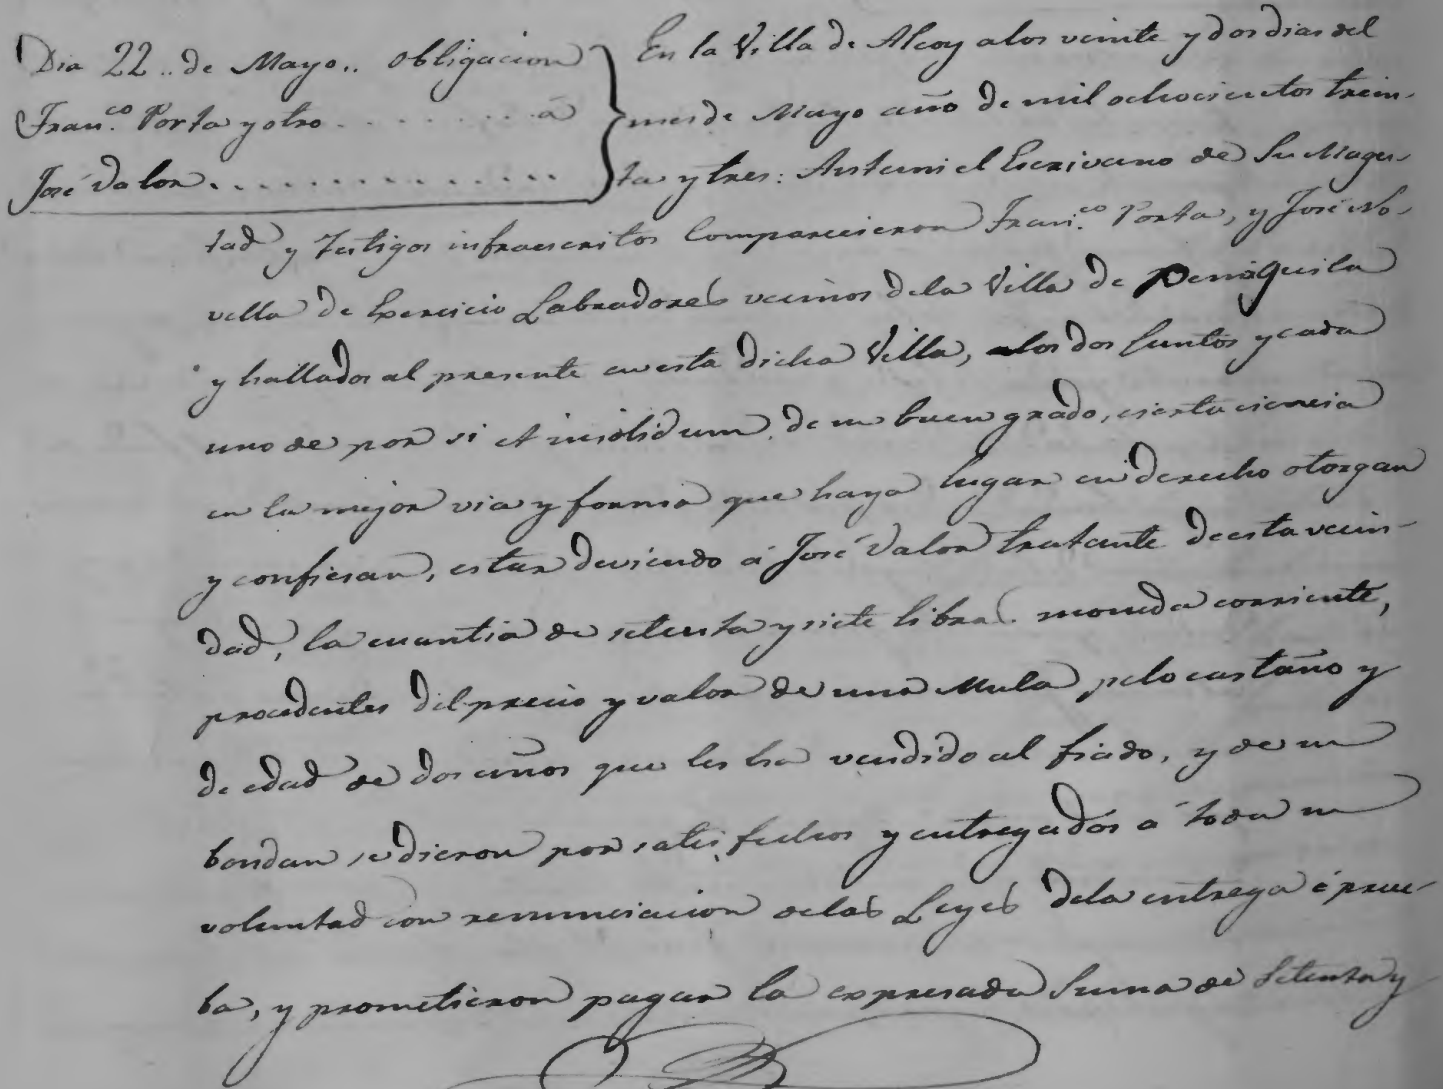 Dia 22.. de Mayo.. Obligacion
Fran.co Porta y otro . . . . . . . . á
José Valor. . . . . . . . . . . . . . .
En la Villa de Alcoy a los veinte y dos dias del
mes de Mayo año de mil ochocientos trein-
ta y tres: Ante mi el Escrivano de Su Mages-
tad y Testigos infraescritos Comparecieron Fran.co Porta, y José No-
vella de Exercicio Labradores vecinos dela Villa de Penáguila
y hallados al presente en esta dicha Villa, los dos Juntos y cada
uno de por si et insolidum, de su buen grado, cierta ciencia
en la mejor via y forma que haya lugar en derecho otorgan
y confiesan, estar deviendo á José Valor tratante de esta vecin-
dad, la cuantia de setenta y siete libras moneda corriente,
procedentes del precio y valor de una Mula pelo castaño y
de edad de dos años que les ha vendido al fiado, y de su
bondan se dieron por satisfechos y entregados á toda su
voluntad con renunciacion delas Leyes dela entrega é prue-
ba, y prometieron pagar la expresada Suma de Setenta y